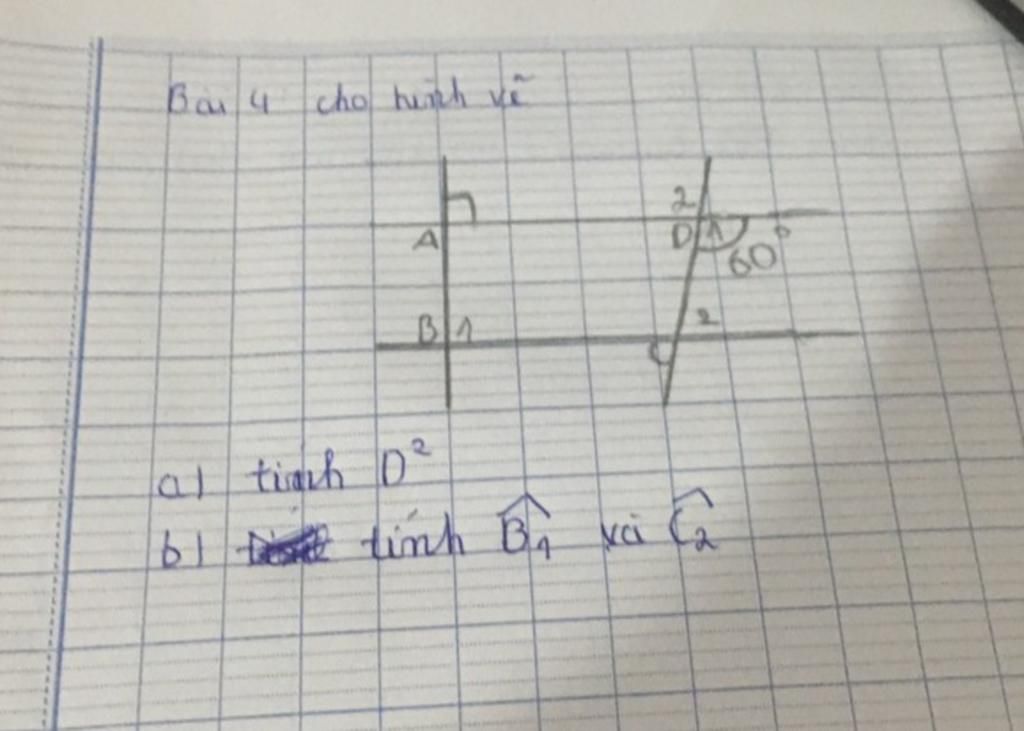 Bài 4 cho hình vẽ
2
A
D 1
60°
B 1
2
C
a) tính D²
b) tính B̂₁ và Ĉ₂